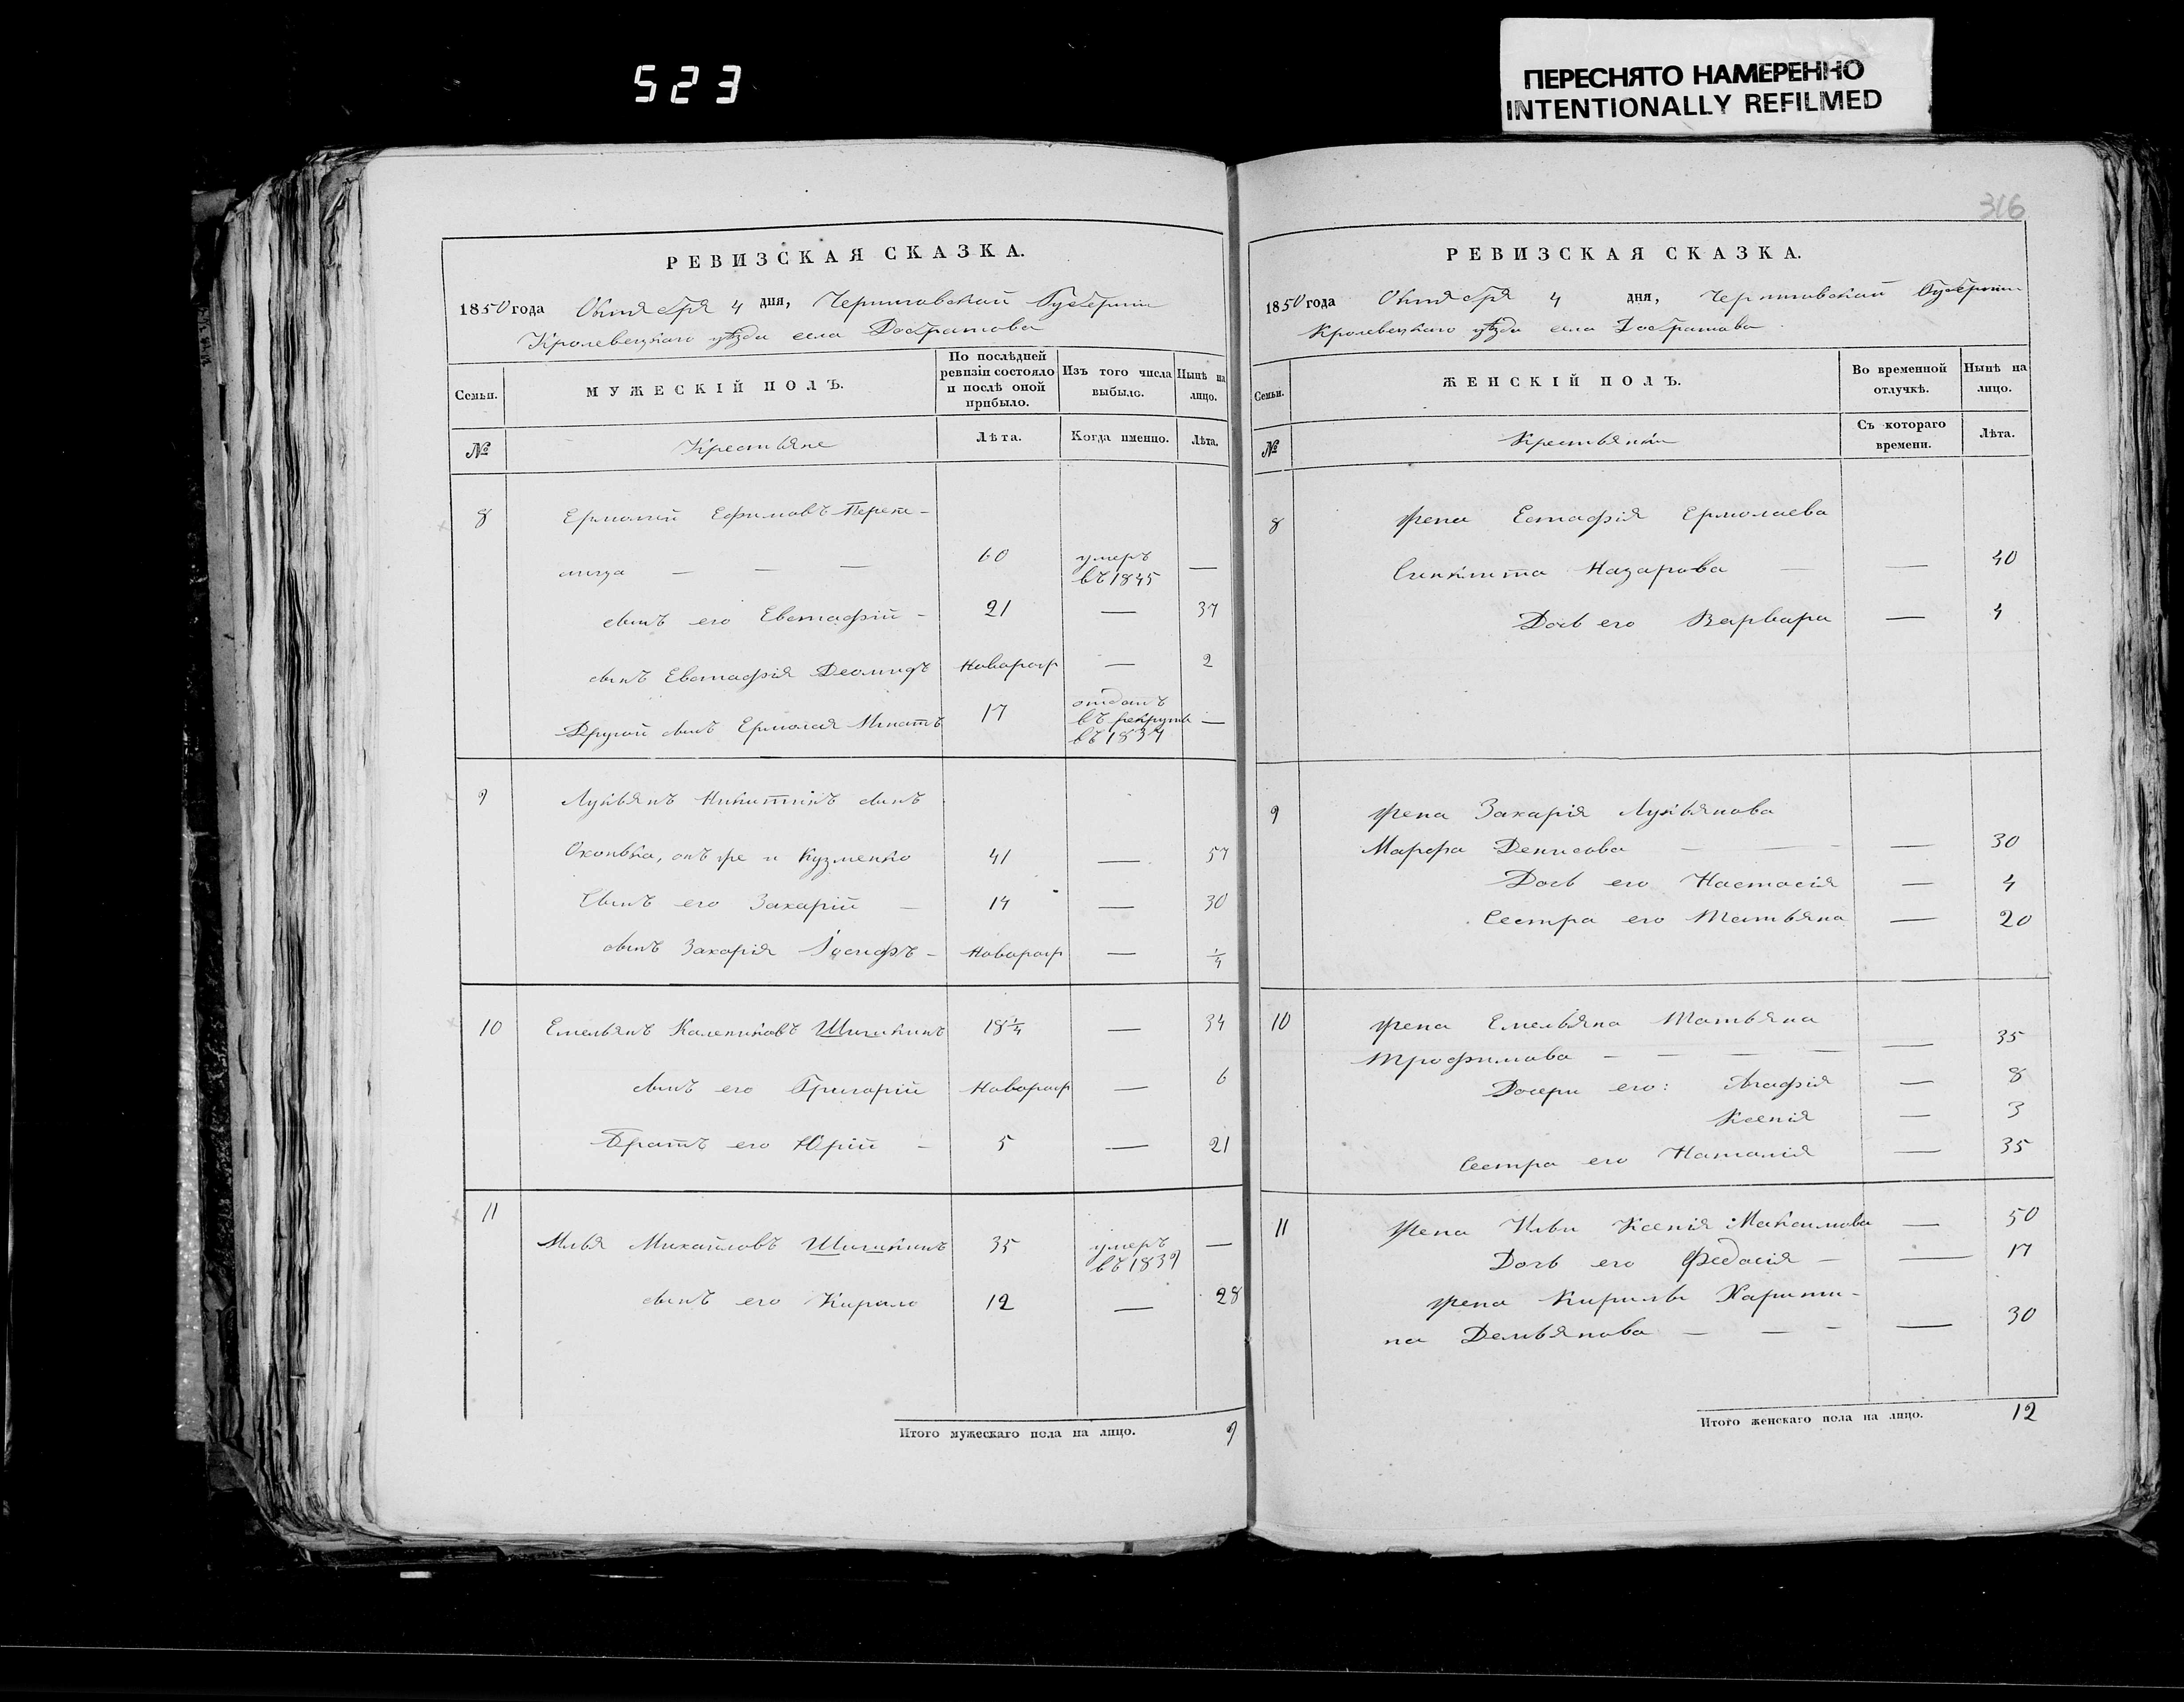 523
ПЕРЕСНЯТО НАМЕРЕННО
INTENTIONALLY REFILMED
РЕВИЗСКАЯ СКАЗКА.
1850 года Октября 4 дня, Черниговской Губернии
Кролевецкаго уѣзда села Добратова
Семьи.
МУЖЕСКІЙ ПОЛЪ.
По послѣдней
ревизіи состояло
и послѣ оной
прибыло.
Изъ того числа
выбыло.
Нынѣ на
лицо.
№
Крестьяне
Лѣта.
Когда именно.
Лѣта.
8 Ермолай Ефимовъ
60 умеръ —
въ 1845
сынъ его Евстафій - 21 — 37
сынъ Евстафія Деомидъ Новорож — 2
Другой сынъ Ермолая Игнатъ 17 отданъ
въ рекруты —
въ 1834
9 Лукьянъ Никитинъ сынъ
онъ же и Кузменко 41 — 57
Сынъ его Захарій — 14 — 30
сынъ Захарія Іосифъ - Новорож — 1/4
10 Емельянъ Калениковъ Шишкинъ 18 1/4 — 34
сынъ его Григорій Новорож — 6
Братъ его Юрій - 5 — 21
11
Илья Михайловъ Шишкинъ 35 умеръ —
въ 1839
сынъ его Кирило 12 — 28
Итого мужескаго пола на лицо. 9
316
РЕВИЗСКАЯ СКАЗКА.
1850 года Октября 4 дня, Черниговской Губернии
Кролевецкаго уѣзда села Добратова
Семьи.
ЖЕНСКІЙ ПОЛЪ.
Во временной
отлучкѣ.
Нынѣ на
лицо.
№
Крестьянки
Съ котораго
времени.
Лѣта.
8 жена Естафія Ермолаева
Синклита Назарова — — 40
Дочь его Варвара — 4
9 жена Захарія Лукьянова
Марфа Денисова — — — 30
Дочь его Настасія — 4
Сестра его Татьяна — 20
10 жена Емельяна Татьяна
Трофимова — — — — — 35
Дочери его: Агафія — 8
Ксенія — 3
Сестра его Наталія — 35
11 жена Ильи Ксенія Максимова — 50
Дочь его Федосія — — 17
жена Кирилы Харити-
на Демьянова — — - — 30
Итого женскаго пола на лицо. 12